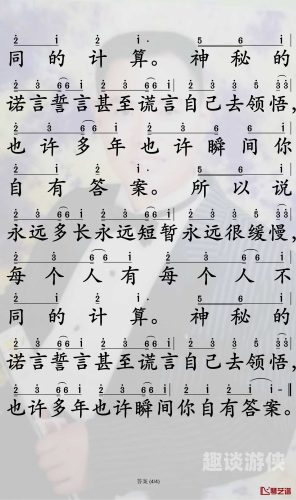 同的计算。神秘的
诺言誓言甚至谎言自己去领悟，
也许多年也许瞬间你
自有答案。所以说
永远多长永远短暂永远很缓慢，
每个人有每个人不
同的计算。神秘的
诺言誓言甚至谎言自己去领悟，
也许多年也许瞬间你自有答案。
趣谈游侠
答案(4/4)
琴艺谱